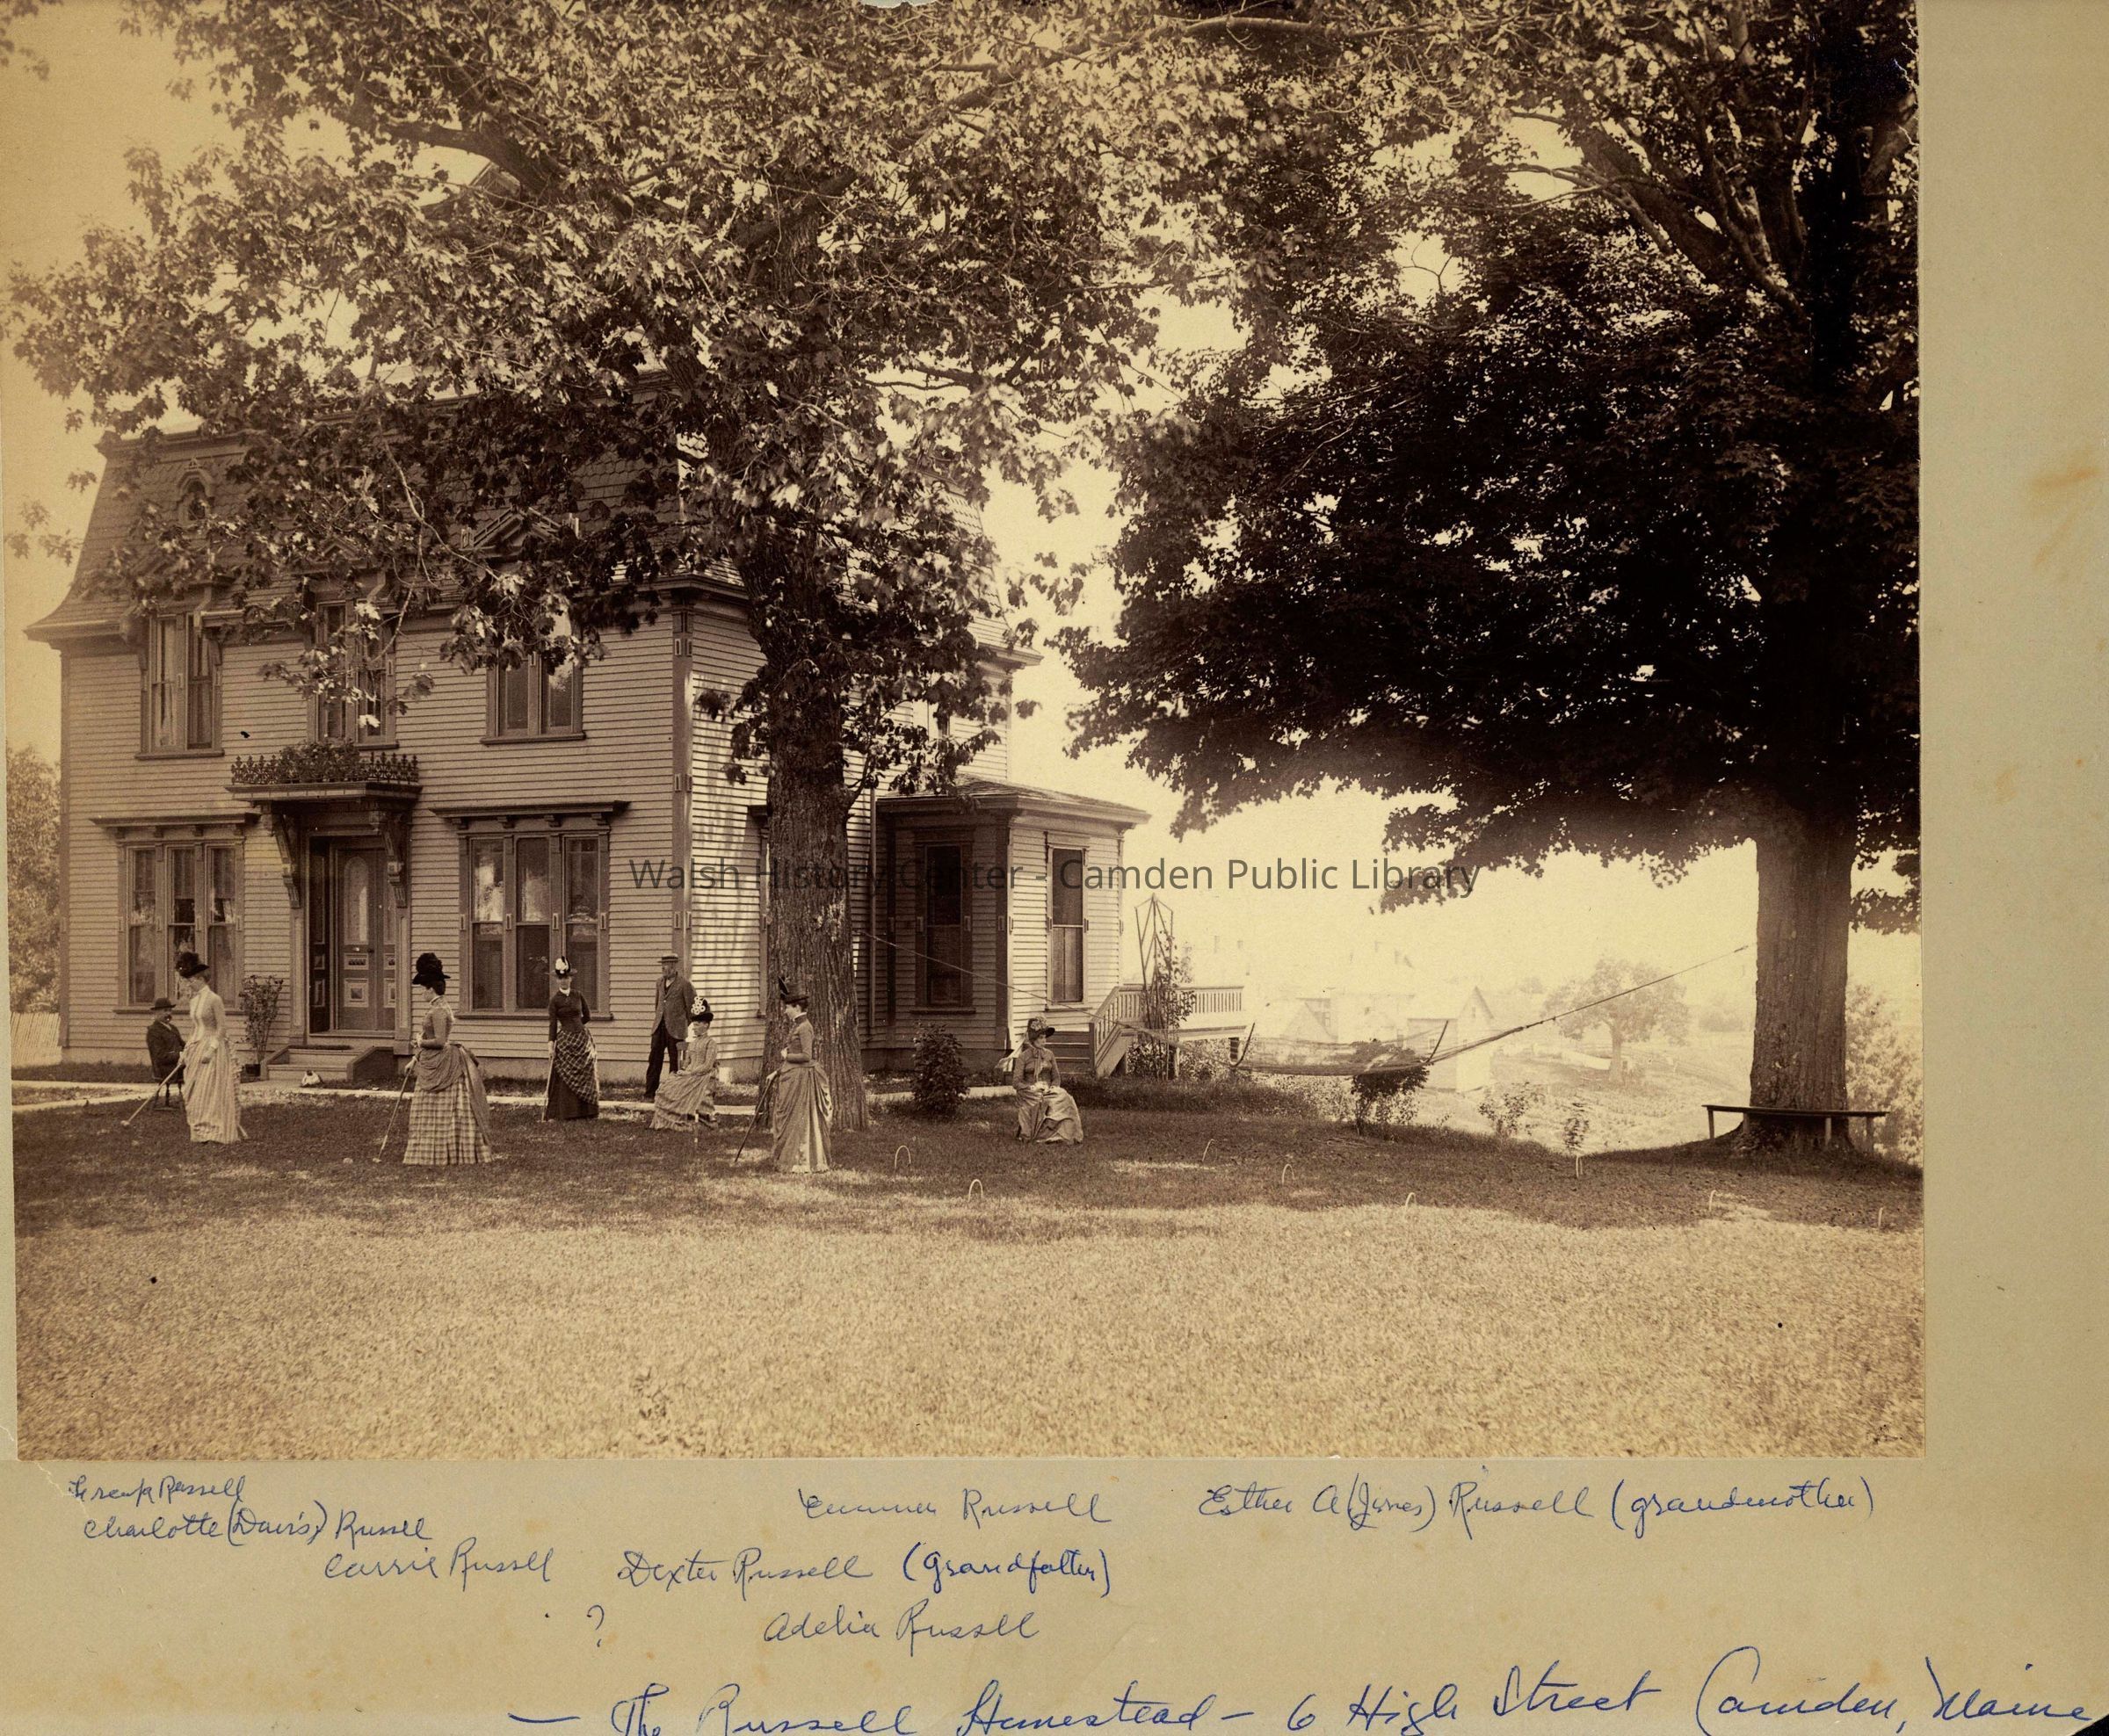 Walsh History Center - Camden Public Library
Frank Russell
Charlotte (Davis) Russell
Carrie Russell
Russell
Esther A (Jones) Russell (grandmother)
Dexter Russell (grandfather)
?
Adelia Russell
— The Russell Homestead — 6 High Street Camden, Maine